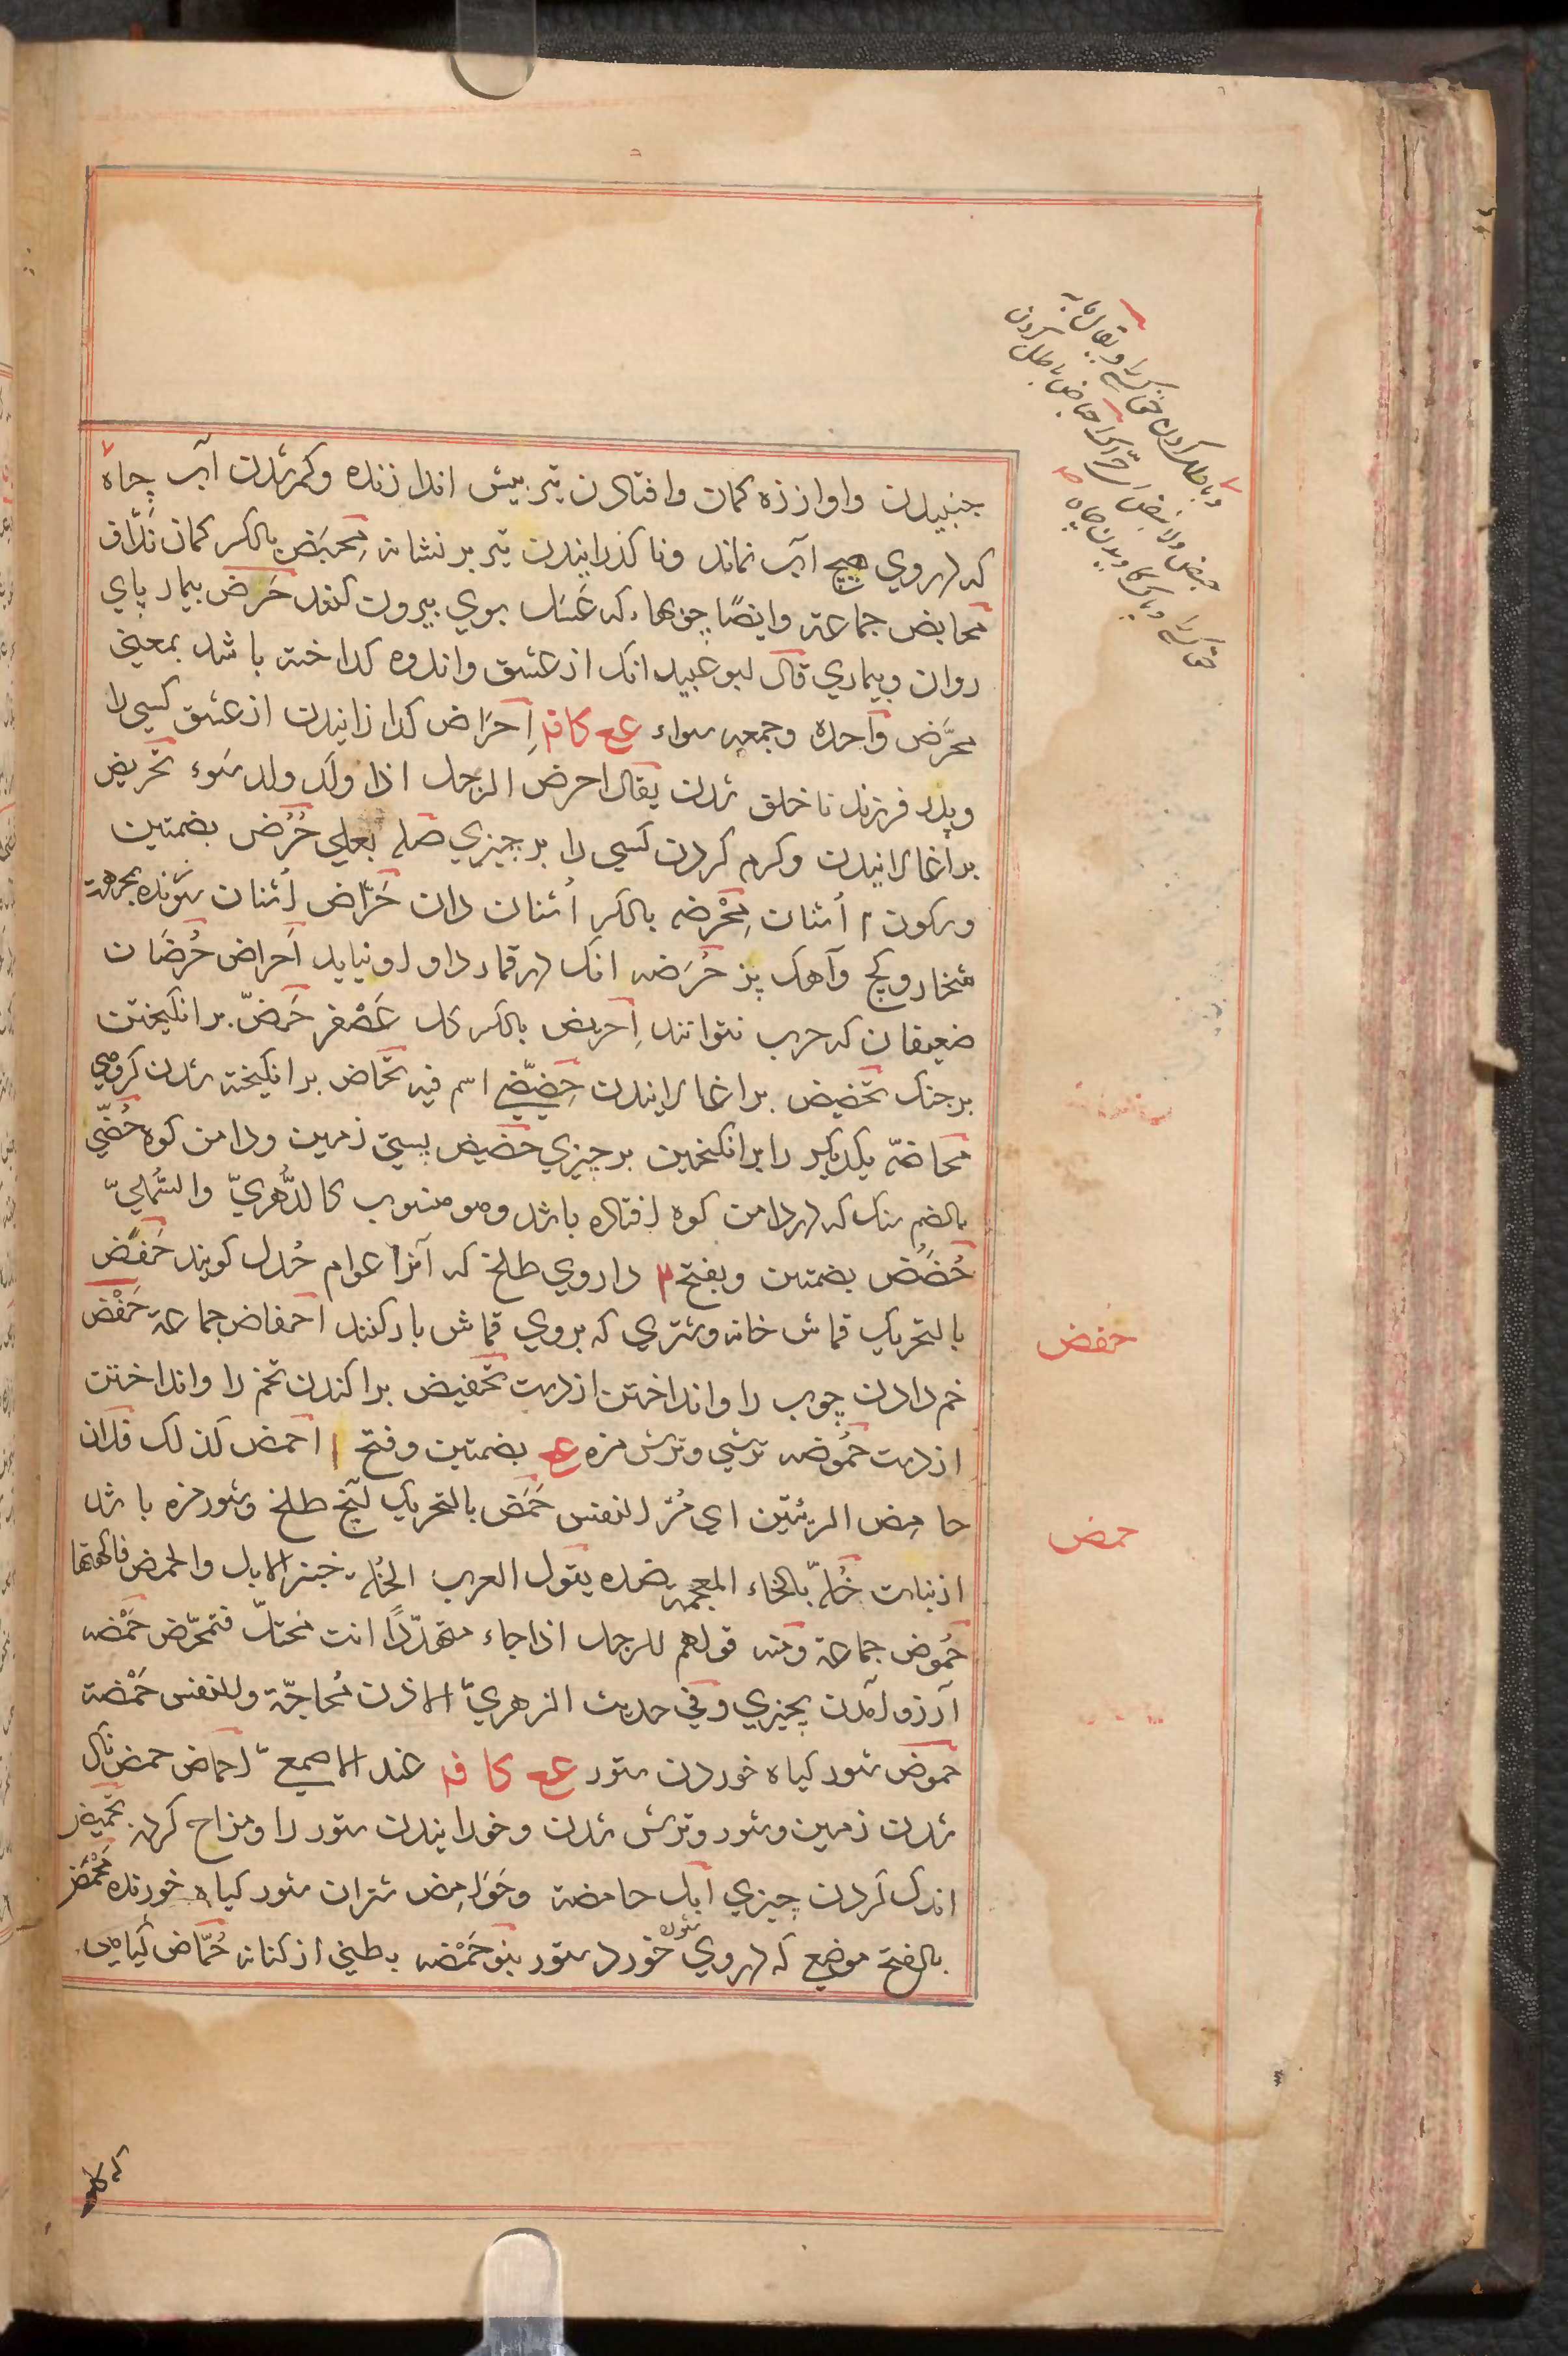 جنبیدن واواز زه کمان وافتادن تیر بیش اندازنده وکم شدن آب چاه
که دروی هیچ آب نماند وناکذرانیدن تیر بر نشانه مِحبَض بالکسر کمان ندّاف
محابض جماعة وایضًا چوبهاء که عَسَل بوی بیرون کنند حَرَض بیمار پای
روان وبیماری قال ابو عبید انک از عشق واندوه کداخته باشد بمعنی
محرَّض واحده وجمعه سواء عـ کا فـ اِحرَاض کدازانیدن از عشق کسی را
وپدر فرزند ناخلق شدن یقال احرض الرجل اذا ولَد ولد سَوء تحریض
براغالانیدن وکرم کردن کسی را بر چیزی صله بعلی حُرُض بضمتین
وسکون ۲ اُشنان مِحْرضه بالکسر اُشنان دان حَرّاض اُشنان سوزنده بجهة
شخار وکچ وآهک پز حُرَضه انک در قمار داو او نیاید اَحراض حُرضَان
ضعیفان که حرب نتوانند اِحریض بالکسر کل عَصْفر حَضّ برانکیختن
بر جنک تحضیض براغالانیدن حِضّیضی اسم فیه تحاض برانکیخته شدن کروهی
محاضّه یکدیکر را برانکیختن بر چیزی حضیض پستی زمین ودامن کوه حُضّی
بالضم سنک که در دامن کوه افتاده باشد وهو منسوب کالدُّهریّ والسُّهلیّ
حُضَُض بضمتین وبفتح ۲ داروی طلخ که آنرا عوام حُدل کویند حَفَض
بالتحریک قماش خانه وشتری که بروی قماش بار کنند احفاض جماعة حَفْض
خم دادن چوب را وانداختن از دست تحفیض براکندن تخم را وانداختن
از دست حمُوضه ترشی وترش مزه عـ بضمتین وفتح ا احمض کذلک فلان
حامِض الرئتین ای مُرّ النفس حَمَض بالتحریک آنچ طلخ وشور مزه باشد
از نبات خُلّة بالخاء المعجمه ضده یقول العرب الخُلة خبز الابل والحمض فاکهتها
حُموض جماعة ومنه قولهم للرجل اذا جاء متهدّدًا انت مختلّ فتحمّض حَمْضه
آرزو آمدن بچیزی وفی حدیث الزهریّ الاذن مُحاجّة وللنفس حَمْضة
حموض شور کیاه خوردن ستور عـ کا فـ عند الاصمعیّ احماض حمض ناک
شدن زمین وشور وترش شدن وخورانیدن ستور را ومزاح کردن تحمیض
اندک کردن چیزی ابل حامضة وحَوَامِض شتران شور کیاه خورنده مَحْمَض
بالفتح موضع که دروی شوره خورد ستور بنو حَمْضه بطنی از کنانه حُمّاض کیاهی
حفض
حمض